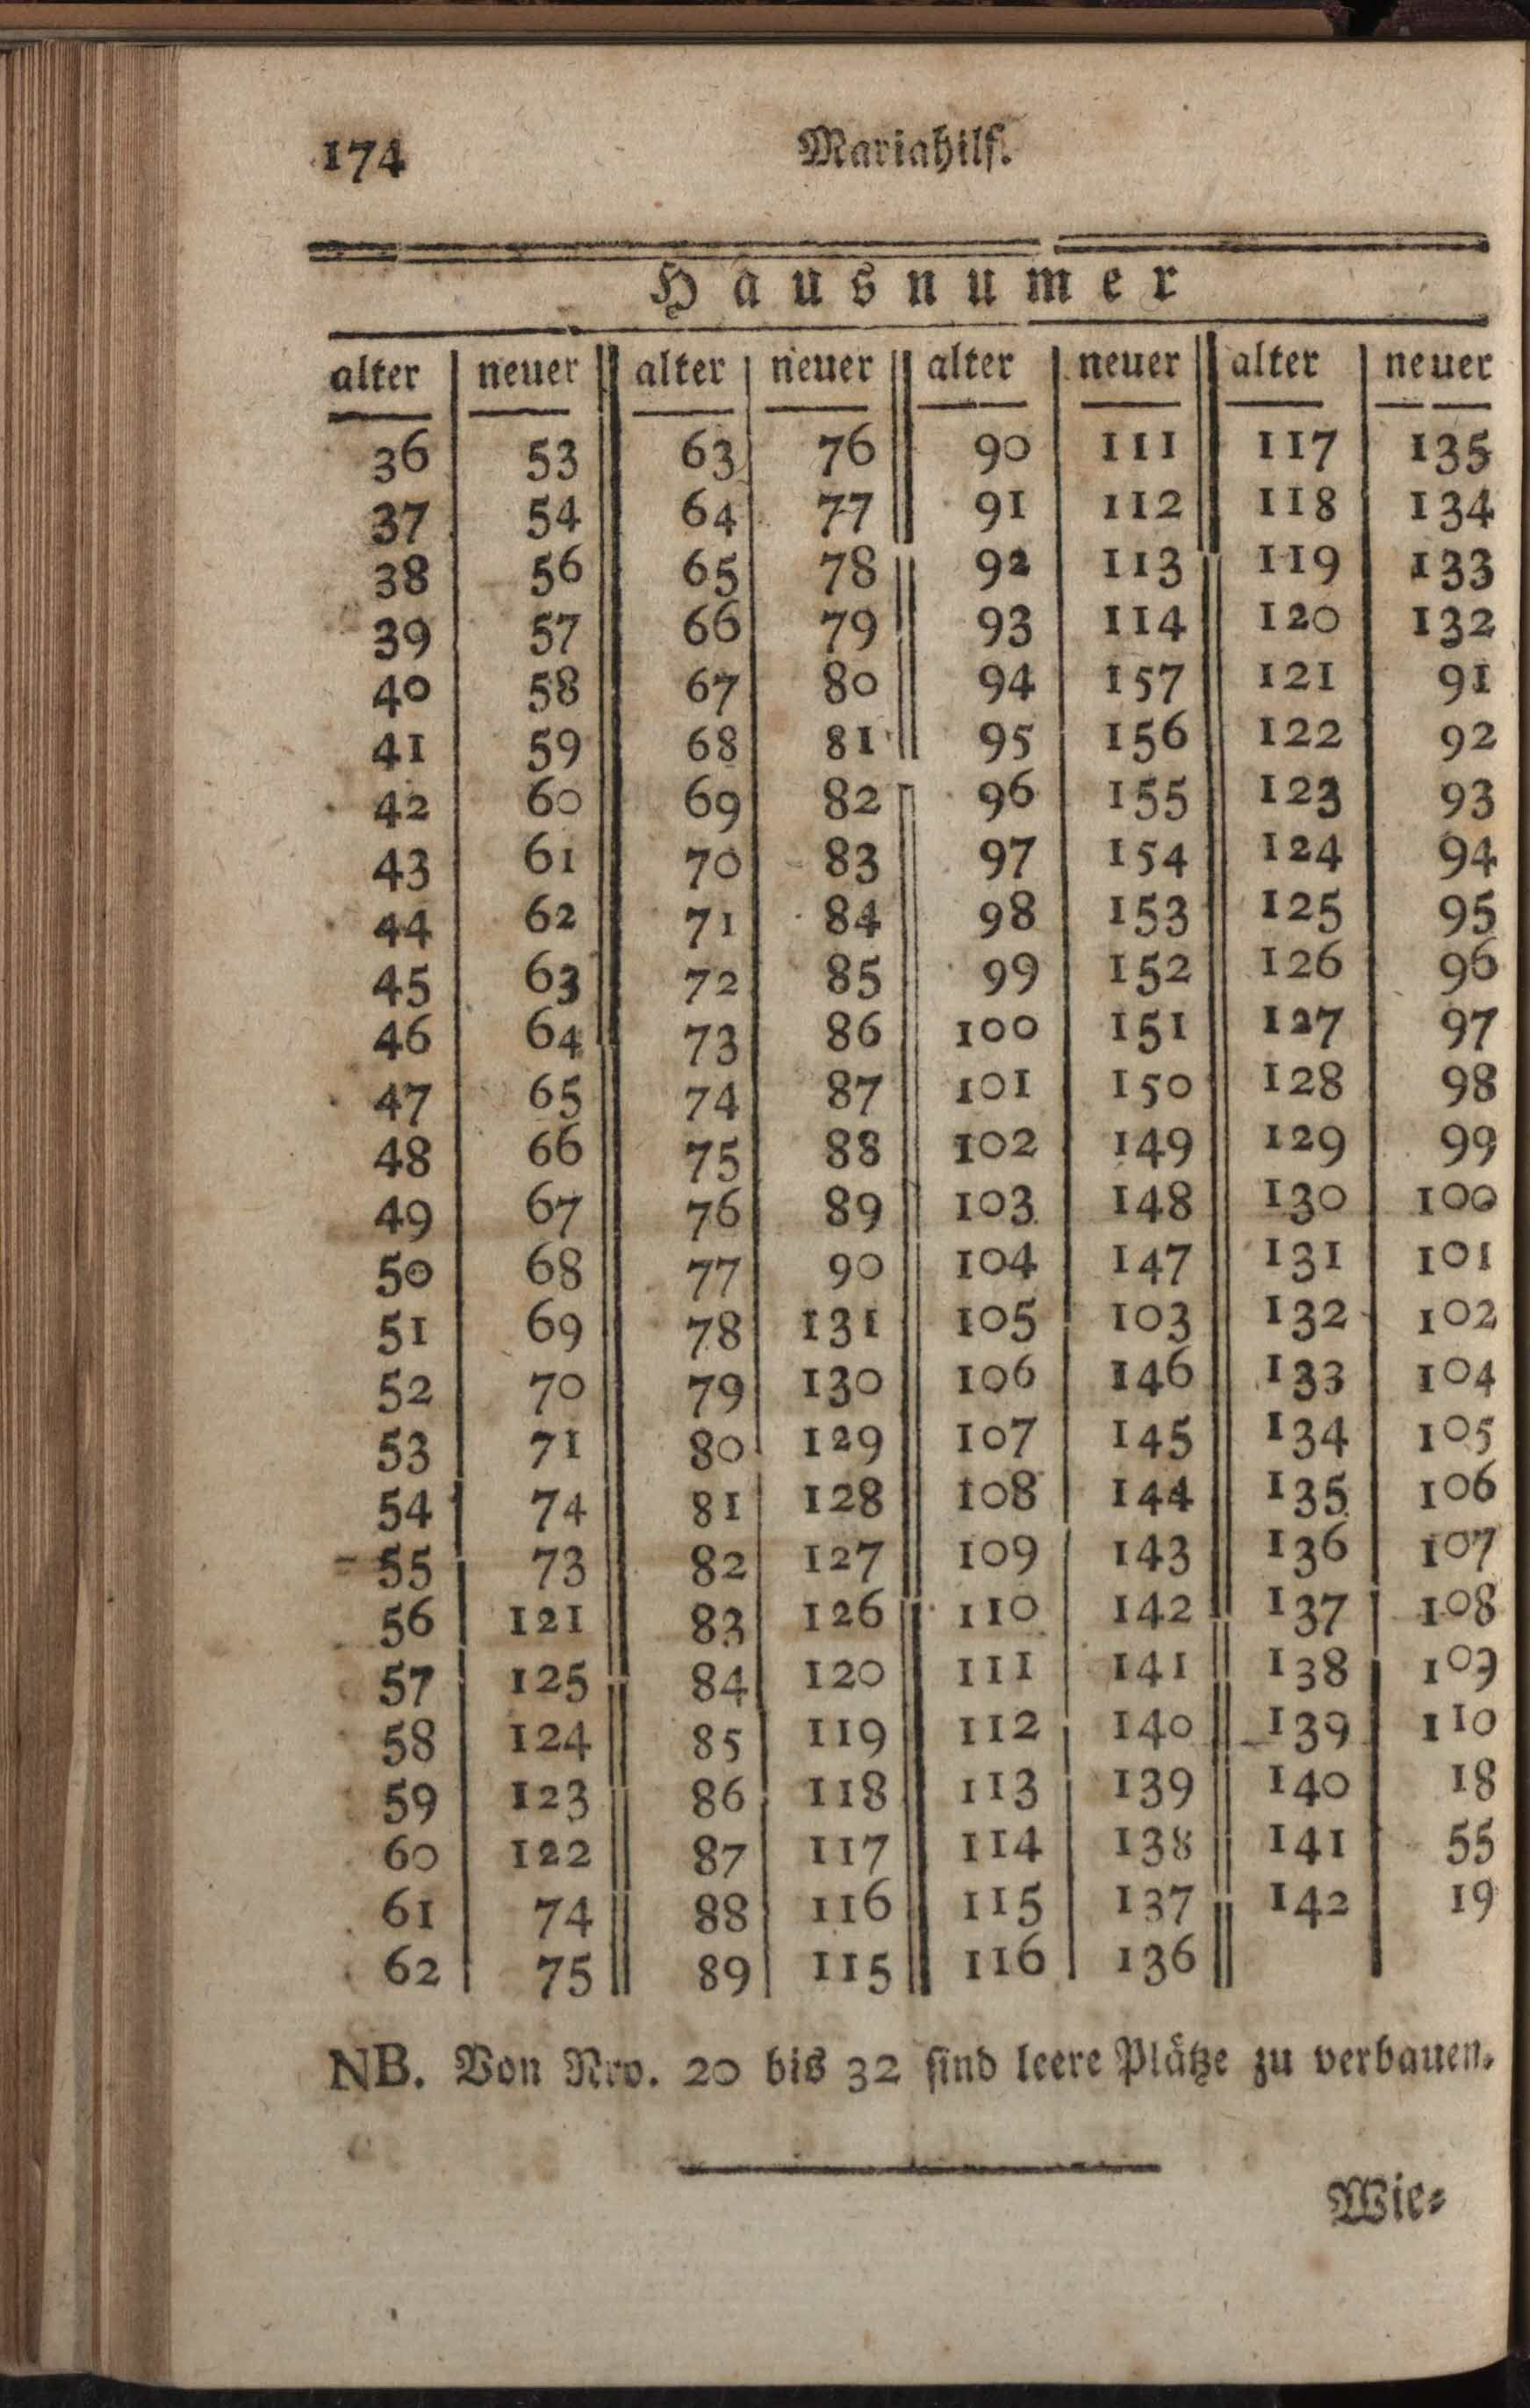 174 Mariahilf.
Hausnumer
alter neuer alter neuer alter neuer alter neuer
36 53 63 76 90 111 117 135
37 54 64 77 91 112 118 134
38 56 65 78 92 113 119 133
39 57 66 79 93 114 120 132
40 58 67 80 94 157 121 91
41 59 68 81 95 156 122 92
42 60 69 82 96 155 123 93
43 61 70 83 97 154 124 94
44 62 71 84 98 153 125 95
45 63 72 85 99 152 126 96
46 64 73 86 100 151 127 97
47 65 74 87 101 150 128 98
48 66 75 88 102 149 129 99
49 67 76 89 103 148 130 100
50 68 77 90 104 147 131 101
51 69 78 131 105 103 132 102
52 70 79 130 106 146 133 104
53 71 80 129 107 145 134 105
54 74 81 128 108 144 135 106
55 73 82 127 109 143 136 107
56 121 83 126 110 142 137 108
57 125 84 120 111 141 138 109
58 124 85 119 112 140 139 110
59 123 86 118 113 139 140 18
60 122 87 117 114 138 141 55
61 74 88 116 115 137 142 19
62 75 89 115 116 136
NB. Von Nro. 20 bis 32 sind leere Plätze zu verbauen.
Wie=